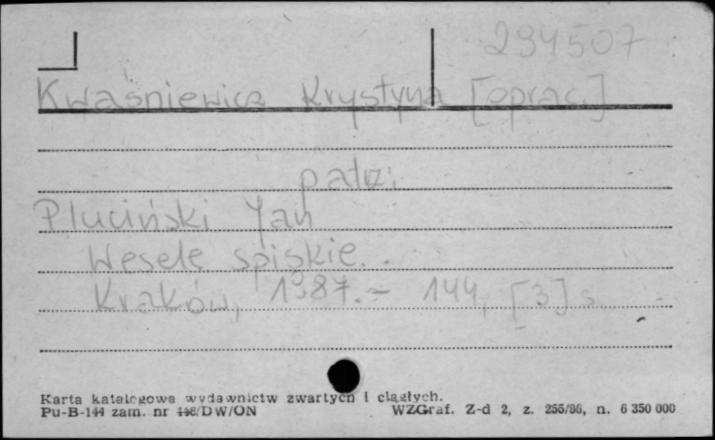 294507
Kwaśniewicz Krystyna [oprac.]
patrz:
Pluciński Jan
Wesele spiskie..
Kraków, 1987.- 144, [3] s.
Karta katalogowa wydawnictw zwartych i ciągłych.
Pu-B-144 zam. nr 448/DW/ON WZGraf. Z-d 2, z. 255/86, n. 6 350 000